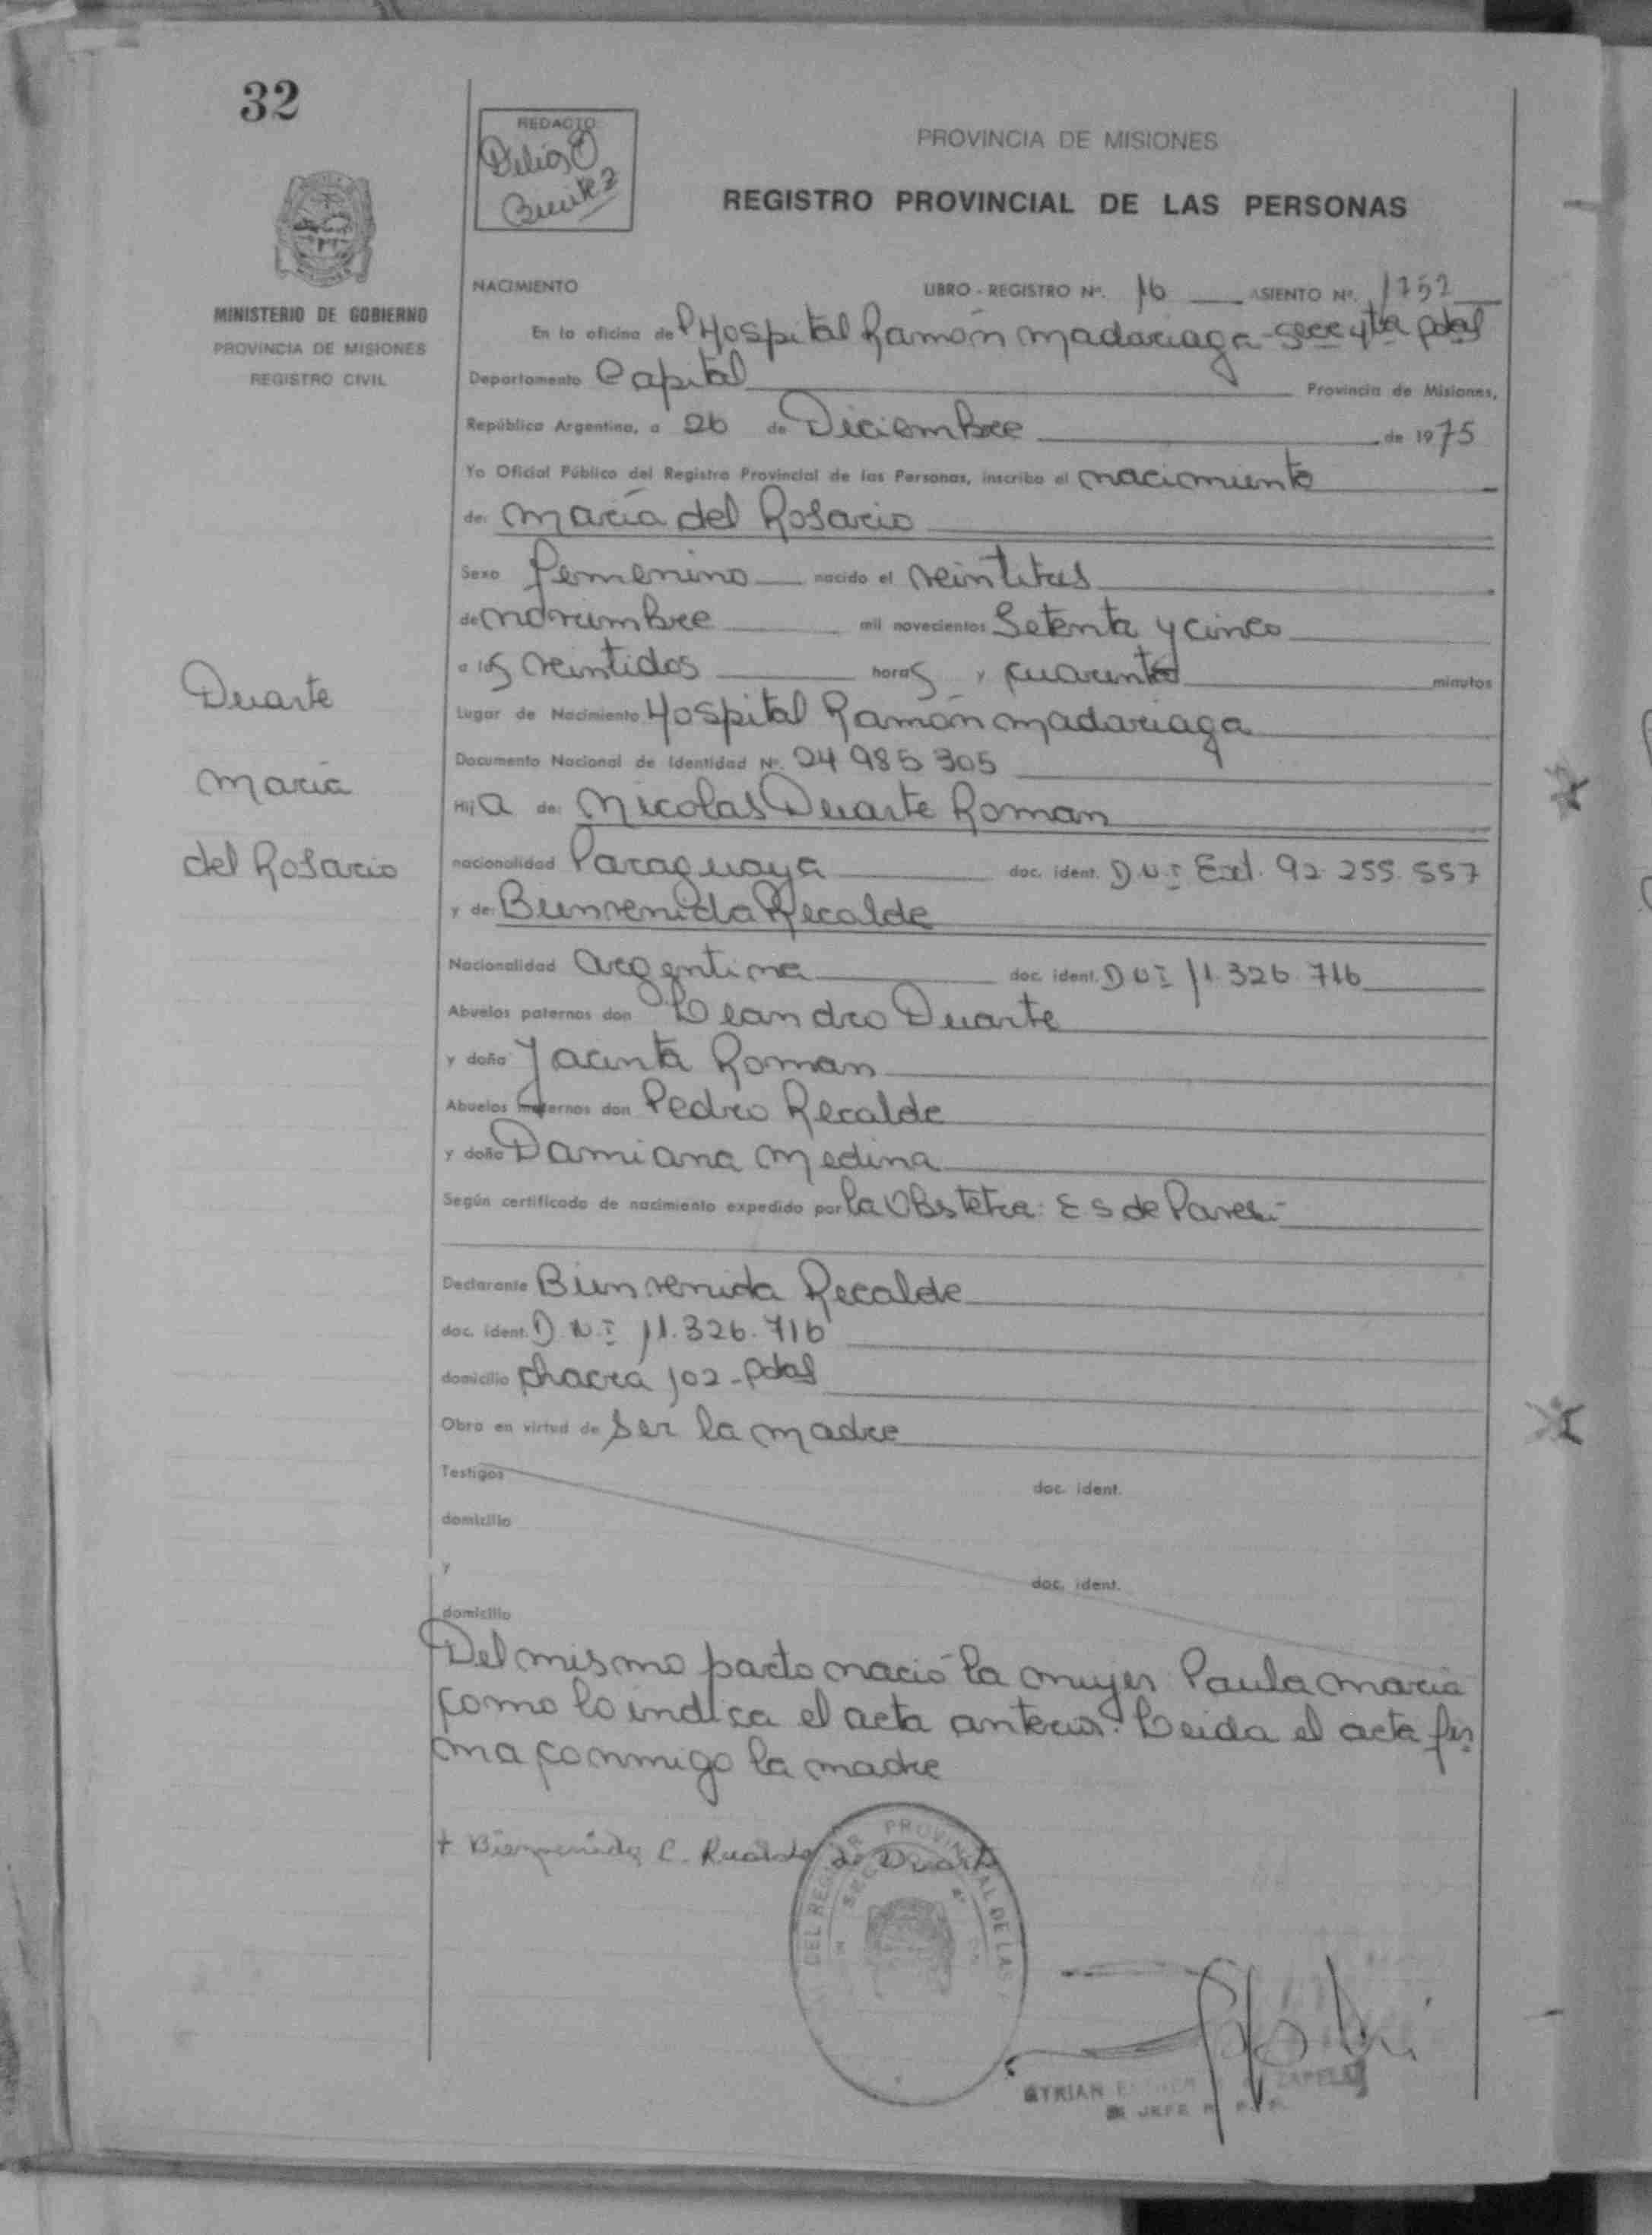 32
REDACTO:
Delia O
Benitez
PROVINCIA DE MISIONES
REGISTRO PROVINCIAL DE LAS PERSONAS
MINISTERIO DE GOBIERNO
PROVINCIA DE MISIONES
REGISTRO CIVIL
NACIMIENTO LIBRO - REGISTRO Nº. 16 ASIENTO Nº. 1752
En la oficina del Hospital Ramón Madariaga - Secc 4ta Pdas
Departamento Capital Provincia de Misiones,
República Argentina, a 26 de Diciembre de 1975
Yo Oficial Público del Registro Provincial de las Personas, inscribo el nacimiento
de: María del Rosario
Sexo femenino nacido el veintitres
de noviembre mil novecientos Setenta y cinco
a las veintidos horas y cuarenta minutos
Lugar de Nacimiento Hospital Ramón Madariaga
Documento Nacional de Identidad Nº. 24 985 305
Hija de: Nicolas Duarte Roman
nacionalidad Paraguaya doc. ident. D.N.I Ext. 92.255.557
y de: Bienvenida Recalde
Nacionalidad argentina doc. ident. DNI 11.326.716
Abuelos paternos don Leandro Duarte
y doña Jacinta Roman
Abuelos maternos don Pedro Recalde
y doña Damiana Medina
Según certificado de nacimiento expedido por la Obstetra: E S de Paresi
Declarante Bienvenida Recalde
doc. ident. D.N.I 11.326.716
domicilio chacra 102 - Pdas
Obra en virtud de ser la madre
Testigos doc. ident.
domicilio
y doc. ident.
domicilio
Duarte
María
del Rosario
Del mismo parto nació la mujer Paula María
como lo indica el acta anterior. Leida el acta fir
ma conmigo la madre
+ Bienvenida C. Recalde de Duarte
DEL REGISTR PROVINCIAL DE LAS
JEFE